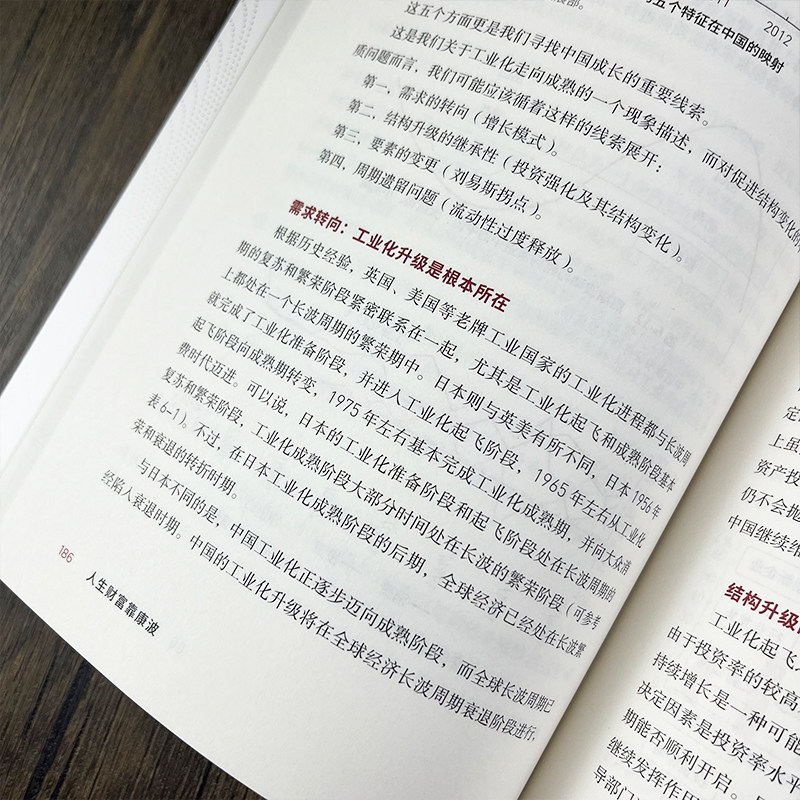 2012
五个特征在中国的映射
这五个方面更是我们寻找中国成长的重要线索。
这是我们关于工业化走向成熟的一个现象描述，而对促进结构变化的
质问题而言，我们可能应该循着这样的线索展开：
第一，需求的转向（增长模式）。
第二，结构升级的继承性（投资强化及其结构变化）。
第三，要素的变更（刘易斯拐点）。
第四，周期遗留问题（流动性过度释放）。
需求转向：工业化升级是根本所在
根据历史经验，英国、美国等老牌工业国家的工业化进程都与长波周
期的复苏和繁荣阶段紧密联系在一起，尤其是工业化起飞和成熟阶段基本
上都处在一个长波周期的繁荣期中。日本则与英美有所不同，日本1956年
就完成了工业化准备阶段，并进入工业化起飞阶段，1965年左右从工业化
起飞阶段向成熟期转变，1975年左右基本完成工业化成熟期，并向大众消
费时代迈进。可以说，日本的工业化准备阶段和起飞阶段处在长波周期的
复苏和繁荣阶段，工业化成熟阶段大部分时间处在长波的繁荣阶段（可参考
表6-1）。不过，在日本工业化成熟阶段的后期，全球经济已经处在长波繁
荣和衰退的转折时期。
与日本不同的是，中国工业化正逐步迈向成熟阶段，而全球长波周期已
经陷入衰退时期。中国的工业化升级将在全球经济长波周期衰退阶段进行，
186
人生财富靠康波
定
上虽
资产投
仍不会抛
中国继续维
结构升级
工业化起飞
由于投资率的较高
持续增长是一种可能
决定因素是投资率水平
期能否顺利开启。
继续发挥作用
导部门